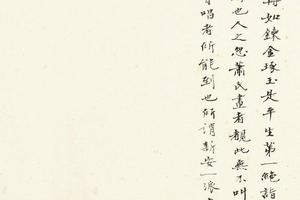 如鍊金琢玉是平生第一絕詣
也人之忽蕭氏畫者覩此無不叫
唱者所能到也所謂新安一派